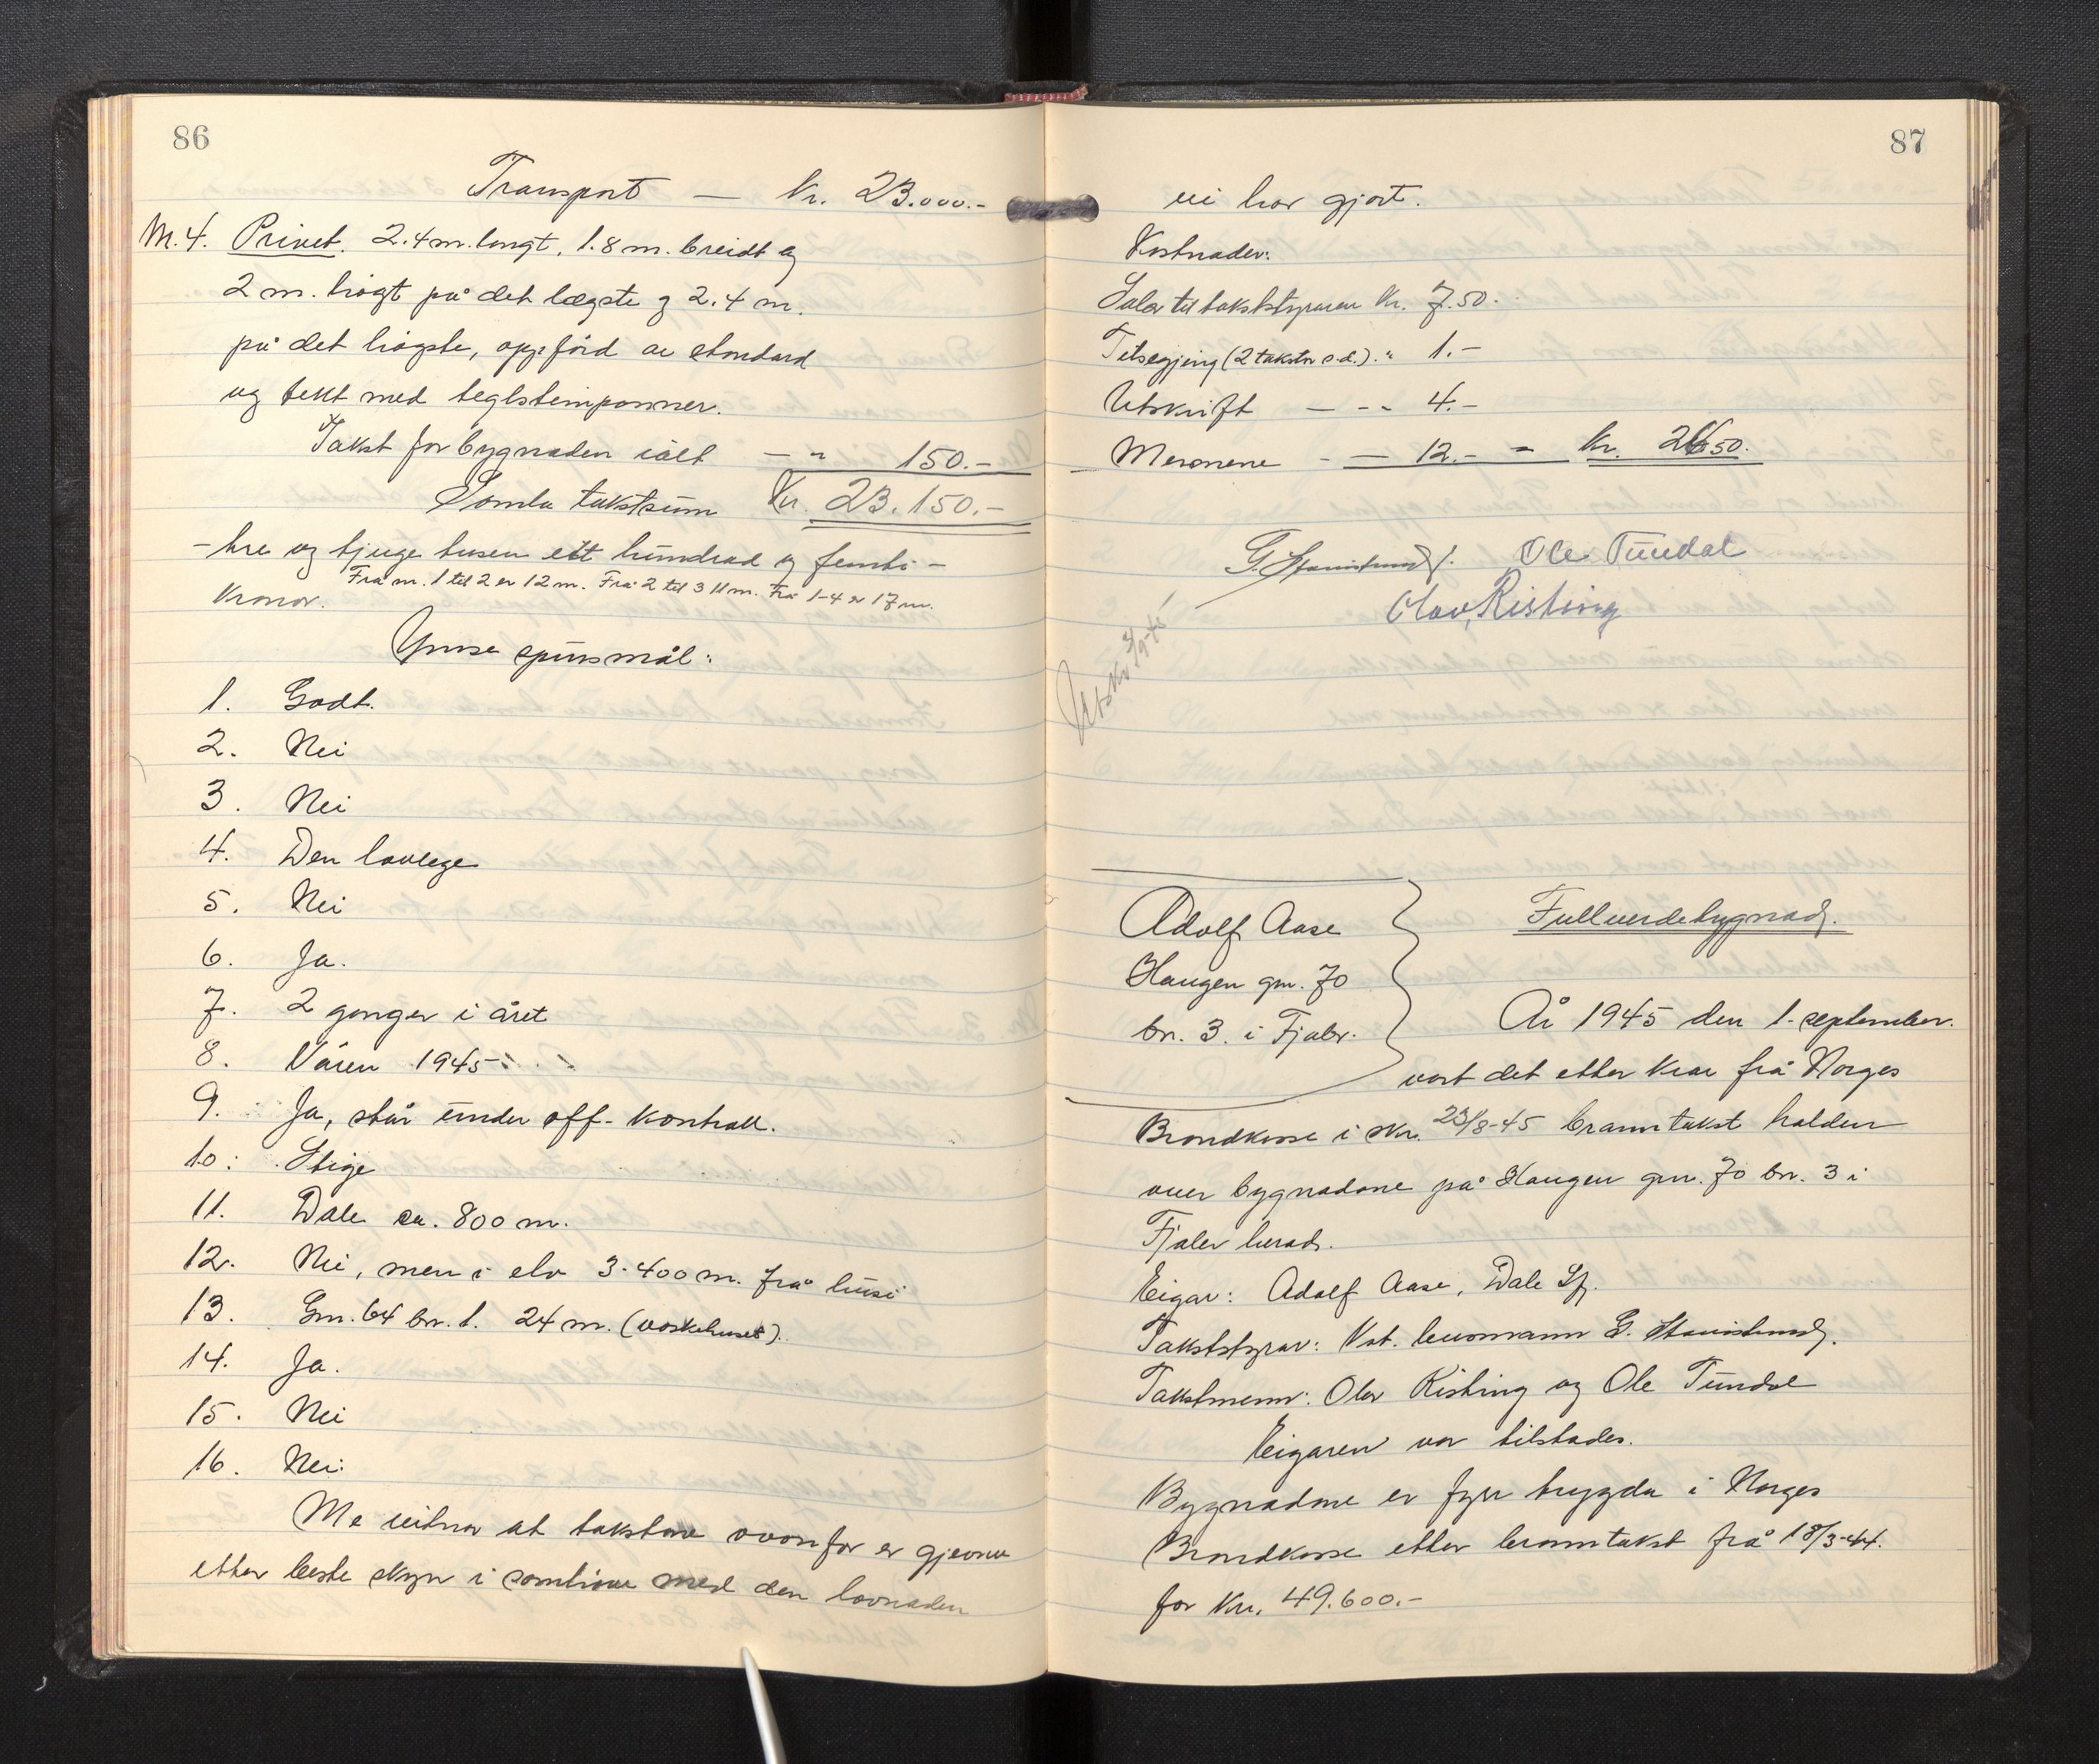 86
Transport — kr. 23.000.-
M.4. Privet. 2.4 m. langt, 1.8 m. breidt og
2 m. høgt på det lægste og 2.4 m.
på det høgste, oppførd av standard
og tekt med teglsteinpanner.
Takst for bygnaden ialt — " 150.-
Samla takstsum Kr. 23.150.-
- tre og tjuge tusen eitt hundrad og femti -
Fra m. 1 til 2 er 12 m. Fra 2 til 3 11 m. Fra 1-4 er 17 m.
kronor.
Ymse spursmål:
1. Godt.
2. Nei
3. Nei
4. Den lovlege
5. Nei
6. Ja.
7. 2 gonger i året
8. Våren 1945
9. Ja, står under off. kontroll.
10. Stige
11. Dale ca. 800 m.
12. Nei, men i elv 3-400 m. frå husi
13. Gm. 64 bn. 1. 24 m. (vaskehuset).
14. Ja.
15. Nei
16. Nei.
Me vitnar at takstane ovanfor er gjevne
etter beste skyn i samhøve med den lovnaden
87
vi har gjort.
Kostnader:
Salær til takststyraren kr. 7.50.
Tilsegjing (2 takster s.d.) " 1.-
Utskrift — - - 4.-
Mennene - — 12.- = kr. 24.50.
G. Ole Tundal
Olav Risting
Utskr. 3/9-45
Adolf Aase
Haugen gn. 70
bn. 3. i Fjaler.
Fullverdebygnad.
År 1945 den 1. september.
vart det etter krav frå Norges
Brandkasse i skr. 23/8-45 branntakst halden
over bygnadane på Haugen gn. 70 bn. 3 i
Fjaler herad.
Eigar: Adolf Aase, Dale Sfj.
Takststyrar: Vit. lensmann G.
Takstmenn: Olav Risting og Ole Tundal
Eigaren var tilstades.
Bygnadane er fyrr trygda i Norges
Brandkasse etter branntakst frå 18/3-44.
for kr. 49.600.-